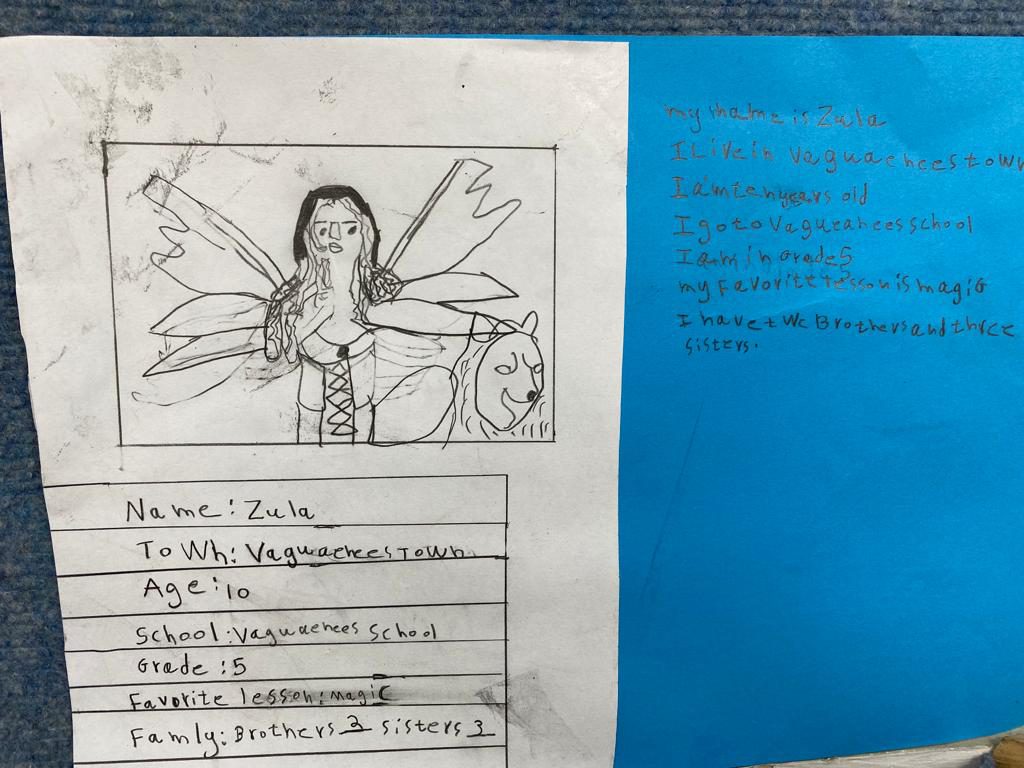 Name: Zula
ToWh: Vaguaeheestown
Age: 10
School: Vaguaehees School
Grade: 5
Favorite lesson: magic
Famly: Brothers 3 sisters 3
my name is Zula
I Live in Vaguaeheestown
I am ten years old
I go to Vagueahees school
I am in Grade 5
my Favorite lesson is magic
I have two Brothers and three
sisters.